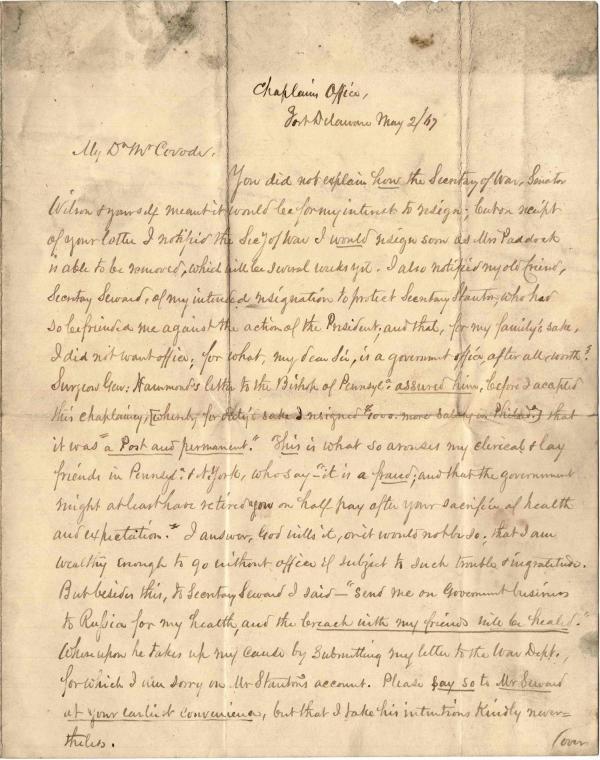 Chaplain's Office,
Fort Delaware May 2/67
My Dr Mr Covode,
You did not explain how the Secretary of War, Senator
Wilson & yourself meant it would be for my interest to resign; but on receipt
of your letter I notified the Secy of War I would resign soon as Mrs Paddock
is able to be removed, which will be several weeks yet. I also notified my old friend,
Secretary Seward, of my intended resignation to protect Secretary Stanton, who had
so befriended me against the action of the President; and that, for my family's sake,
I did not want office; for what, my dear Sir, is a government office after all, worth?
Surgeon Gen: Hammond's letter to the Bishop of Pennsyla assured him, before I accepted
this chaplaincy, [whereby for duty's sake I resigned $1000. more salary in Philada] that
it was "a Post and permanent." This is what so arouses my clerical & lay
friends in Pennsya. & N. York, who say "it is a fraud; and that the government
might at least have retired you on half pay after your sacrifice of health
and expectation." I answer, God wills it, or it would not be so; that I am
wealthy enough to go without office if subject to such trouble & ingratitude.
But besides this, to Secretary Seward I said — "Send me on Government business
to Russia for my health, and the breach with my friends will be healed."
Whereupon he takes up my cause by submitting my letter to the War Dept.,
for which I am sorry on Mr Stanton's account. Please say so to Mr Seward
at your earliest convenience, but that I take his intentions kindly never=
theless.
(over